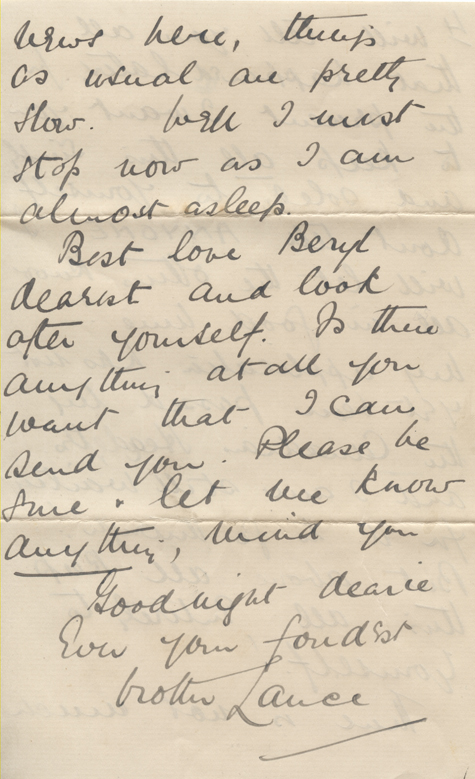 news here, things
as usual are pretty
slow. Well I must
stop now as I am
almost asleep.
Best love Beryl
dearest and look
after yourself. Is there
anything at all you
want that I can
send you. Please be
sure & let me know
anything, mind you
Goodnight dearie
Ever your fondest
brother Lance